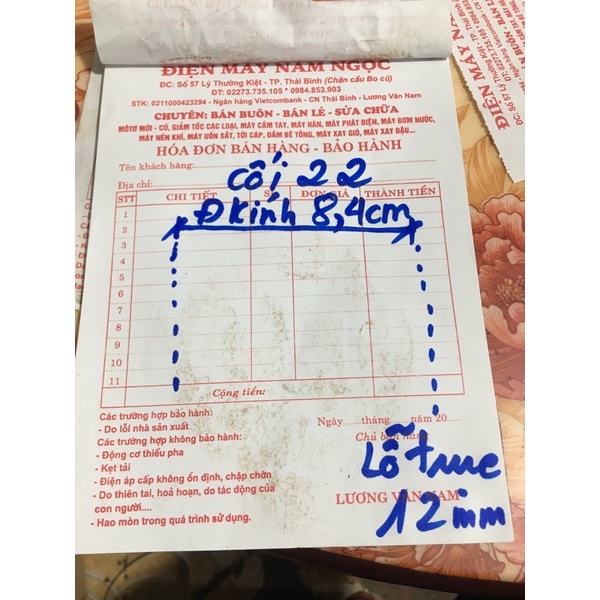 ĐIỆN MÁY NAM NGỌC
ĐC: Số 57 Lý Thường Kiệt - TP. Thái Bình (Chân cầu Bo cũ)
ĐT: 02273.735.105 * 0984.853.903
STK: 0211000423294 - Ngân hàng Vietcombank - CN Thái Bình - Lương Văn Nam
CHUYÊN: BÁN BUÔN - BÁN LẺ - SỬA CHỮA
MÔTƠ MỚI - CŨ, GIẢM TỐC CÁC LOẠI, MÁY CẦM TAY, MÁY HÀN, MÁY PHÁT ĐIỆN, MÁY BƠM NƯỚC,
MÁY NÉN KHÍ, MÁY UỐN SẮT, TỜI CÁP, ĐẦM BÊ TÔNG, MÁY XAY GIÒ, MÁY XAY ĐẬU...
HÓA ĐƠN BÁN HÀNG - BẢO HÀNH
Tên khách hàng:
Địa chỉ:
Cối 22
STT CHI TIẾT ĐƠN GIÁ THÀNH TIỀN
Đ kính 8,4cm
1
2
3
4
5
6
7
8
9
10
11
Cộng tiền:
Các trường hợp bảo hành:
- Do lỗi nhà sản xuất
Các trường hợp không bảo hành:
- Động cơ thiếu pha
- Kẹt tải
- Điện áp cấp không ổn định, chập chờn
- Do thiên tai, hoả hoạn, do tác động của
con người....
- Hao mòn trong quá trình sử dụng.
Ngày tháng năm 20
Chủ bán hàng
Lỗ trục
LƯƠNG VĂN NAM
12mm